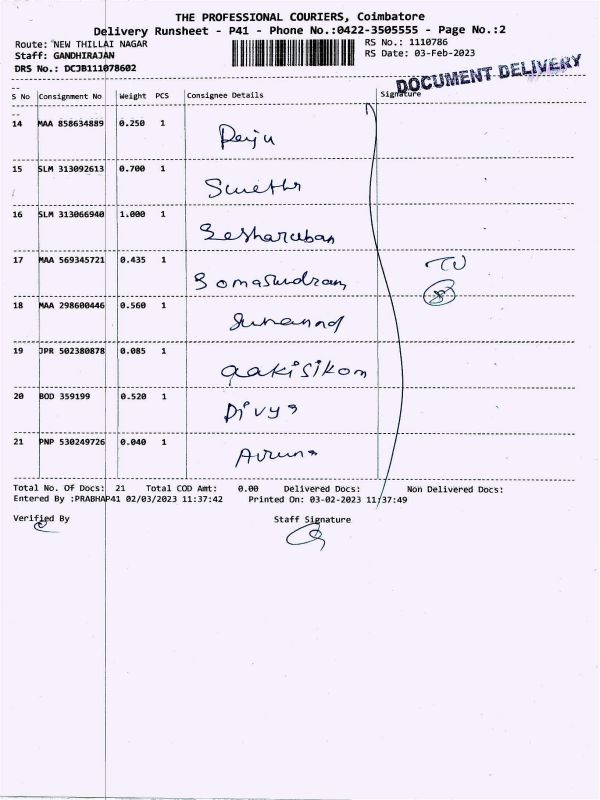 THE PROFESSIONAL COURIERS, Coimbatore
Delivery Runsheet - P41 - Phone No.:0422-3505555 - Page No.:2
Route: NEW THILLAI NAGAR RS No.: 1110786
Staff: GANDHIRAJAN RS Date: 03-Feb-2023
DRS No.: DCJB111078602
DOCUMENT DELIVERY
S No Consignment No Weight PCS Consignee Details Signature
14 MAA 858634889 0.250 1
15 SLM 313092613 0.700 1 Swetha
16 SLM 313066940 1.000 1
17 MAA 569345721 0.435 1 Somasundram
18 MAA 298600446 0.560 1
19 JPR 502380878 0.085 1
20 BOD 359199 0.520 1 Divya
21 PNP 530249726 0.040 1 Aruna
Total No. Of Docs: 21 Total COD Amt: 0.00 Delivered Docs: Non Delivered Docs:
Entered By :PRABHAP41 02/03/2023 11:37:42 Printed On: 03-02-2023 11:37:49
Verified By Staff Signature